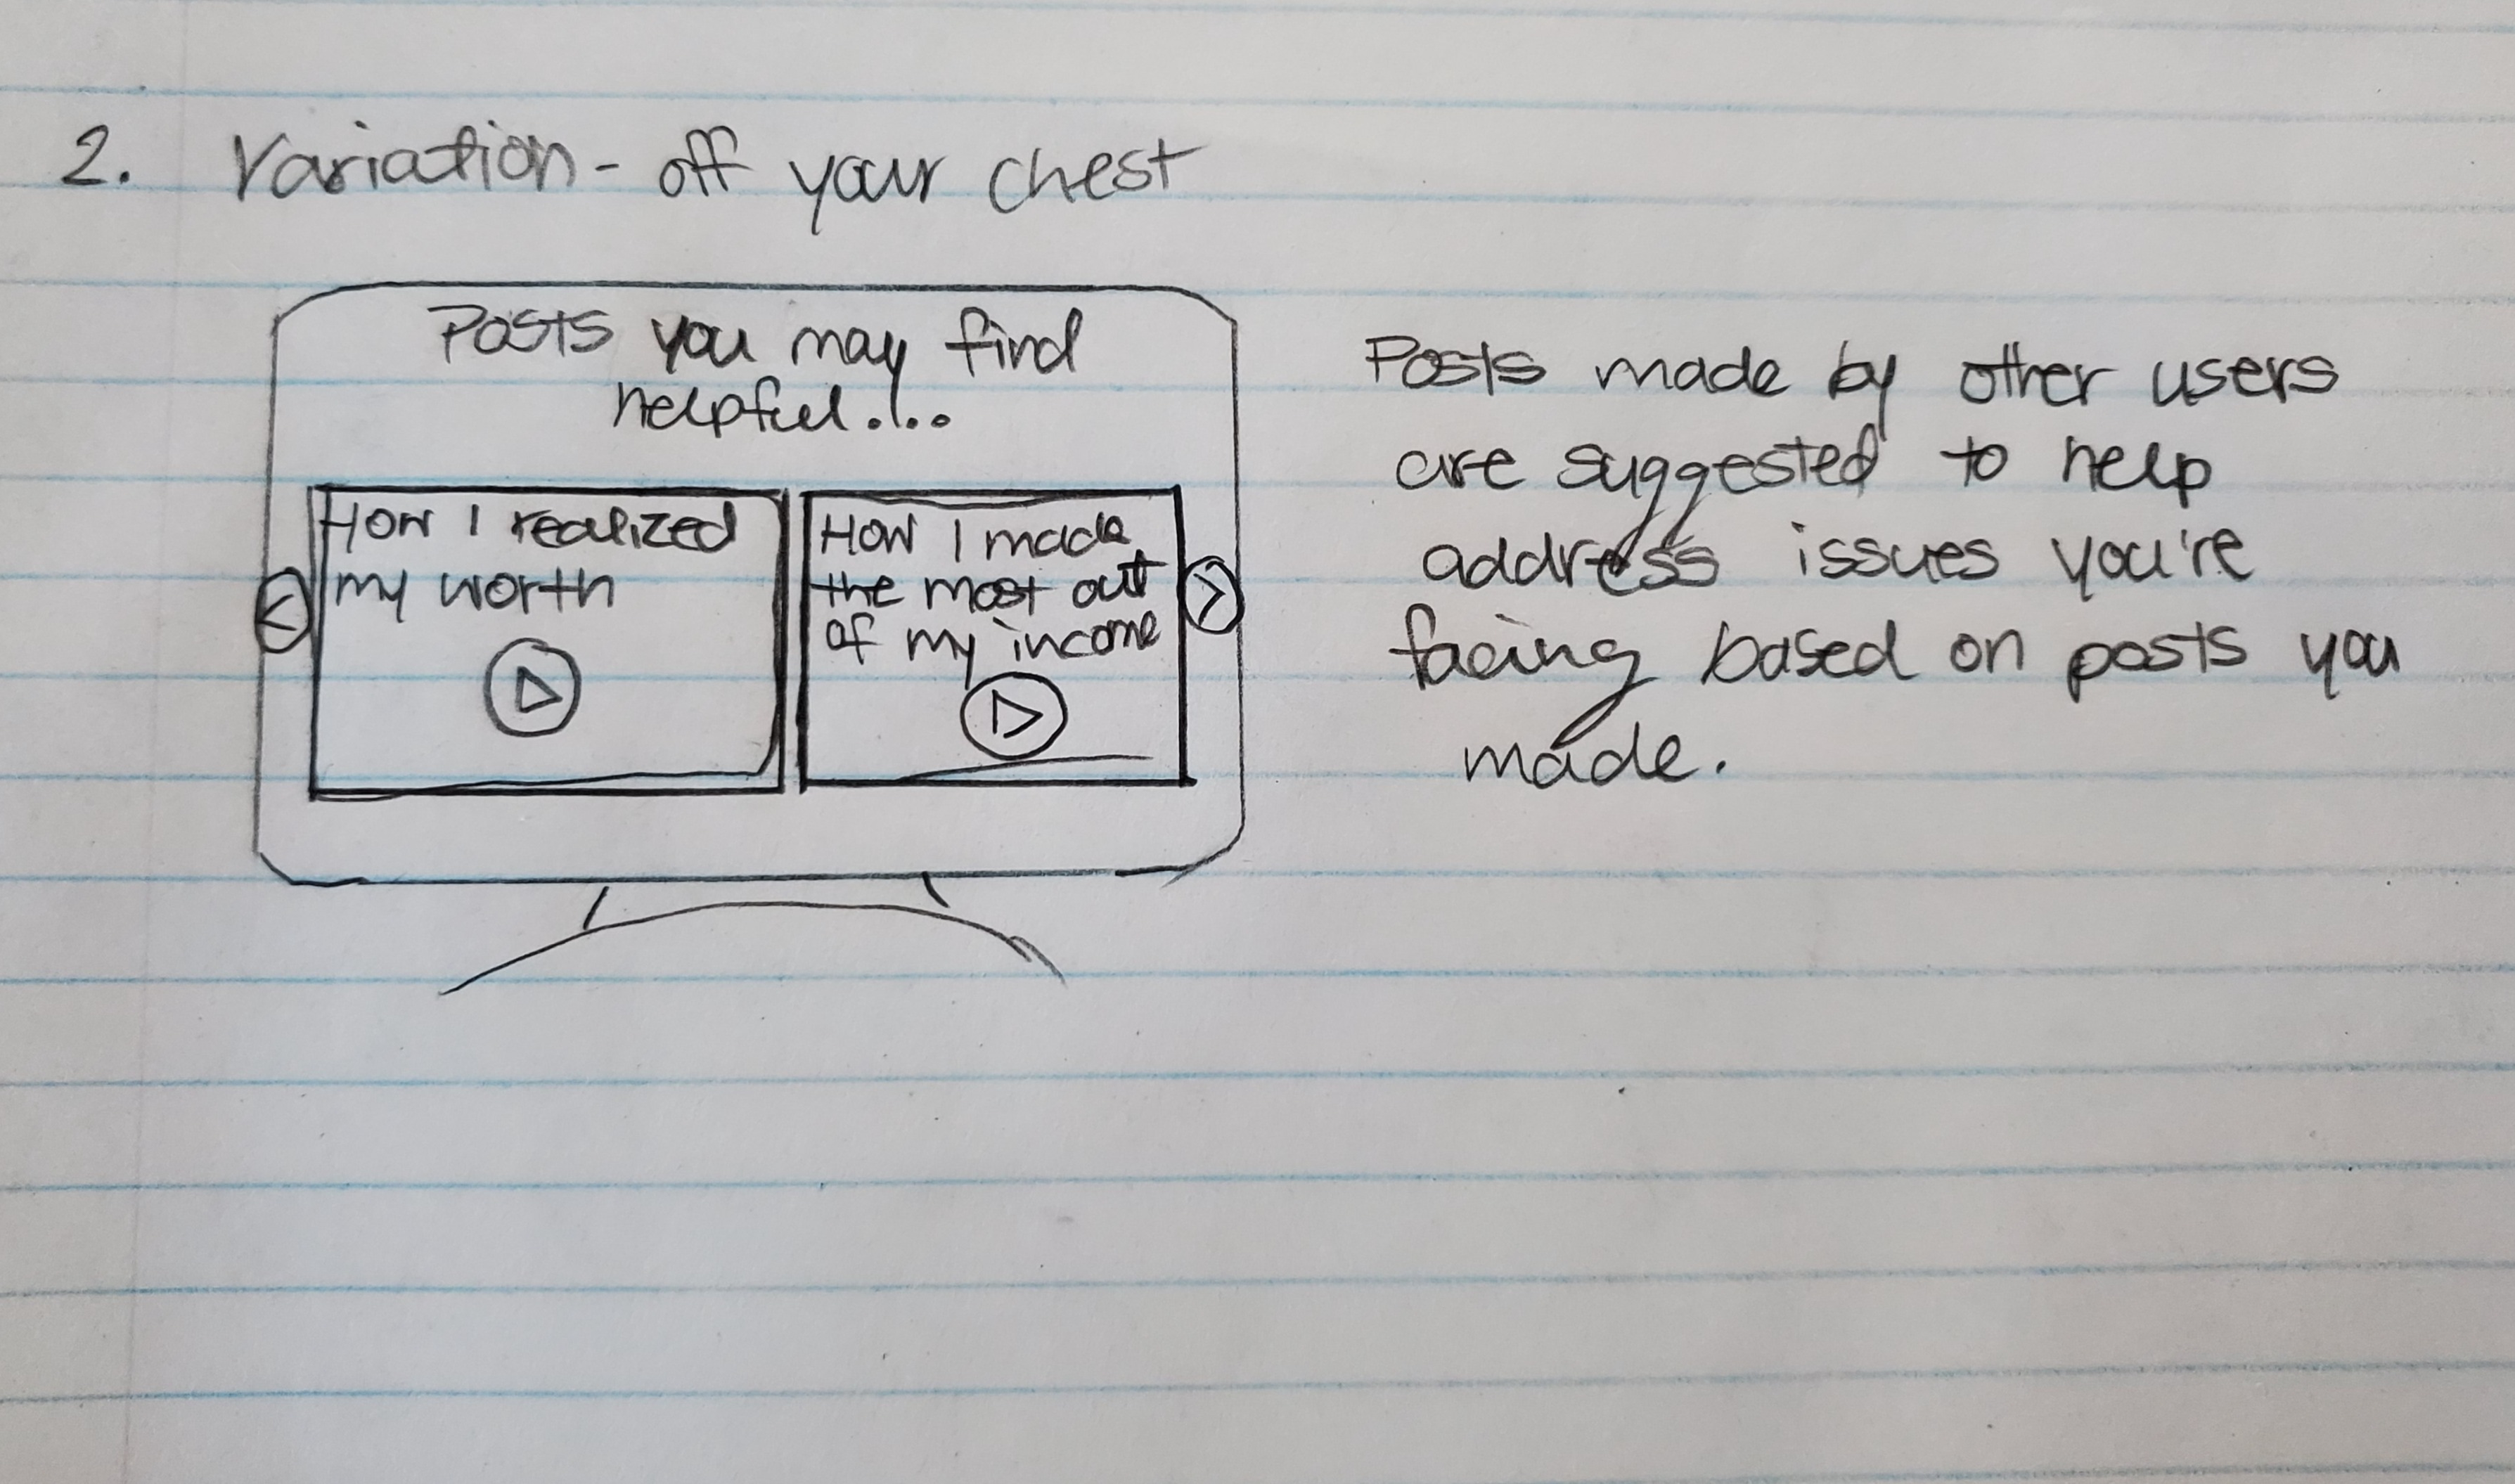 2. Variation - off your chest
Posts you may find
helpful....
How I realized
my worth
How I made
the most out
of my income
Posts made by other users
are suggested to help
address issues you're
facing based on posts you
made.